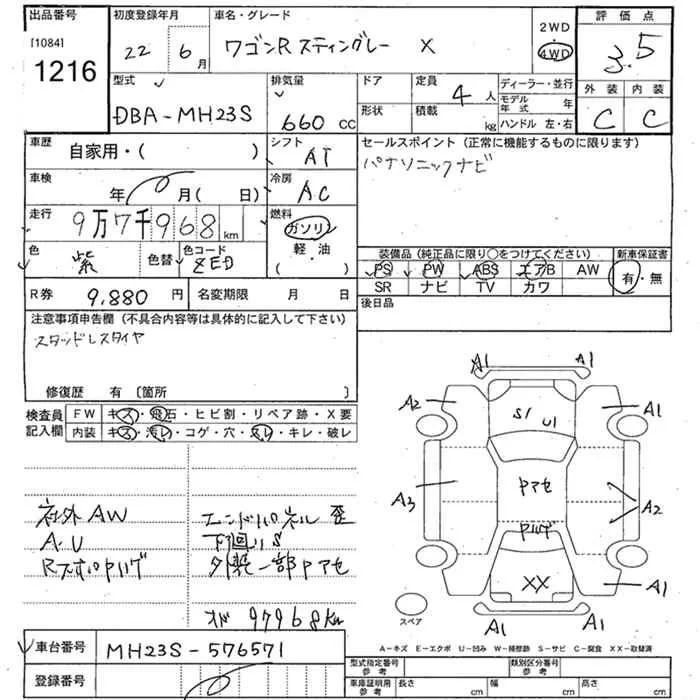 出品番号
[1084]
1216
初度登録年月
22 6月
車名・グレード
ワゴンR スティングレー X
2WD
4WD
評価点
3.5
外装 内装
C C
型式
DBA-MH23S
排気量
660cc
ドア
形状
定員
4人
積載
kg
ディーラー・並行
モデル年式 年
ハンドル 左・右
車歴
自家用・( )
シフト
AT
セールスポイント (正常に機能するものに限ります)
パナソニックナビ
車検
年 月( 日)
冷房
AC
走行
9万7千968km
燃料
ガソリン
軽・油
( )
色
紫
色替
色コード
ZED
装備品 (純正品に限り○をつけてください)
PS PW ABS エアB AW
SR ナビ TV カワ
新車保証書
有・無
R券
9,880円
名変期限 月 日
後日品
注意事項申告欄 (不具合内容等は具体的に記入して下さい)
スタッドレスタイヤ
修復歴 有 〔箇所 〕
検査員
記入欄
FW キズ・飛石・ヒビ割・リペア跡・X要
内装 キズ・汚レ・コゲ・穴・スレ・キレ・破レ
社外AW
A・U
エンドパネル 歪
下廻りS
外装一部Pアセ
メーター 97968km
A1 A1
A2 A1
S1 U1
A3 Pアセ A2
Pハゲ
XX A1
A1 A1
スペア
A-キズ E-エクボ U-凹み W-補修跡 S-サビ C-腐食 XX-取替済
車台番号
MH23S-576571
登録番号
型式指定番号
参考
類別区分番号
参考
車庫証明用
参考
長さ cm 幅 cm 高さ cm